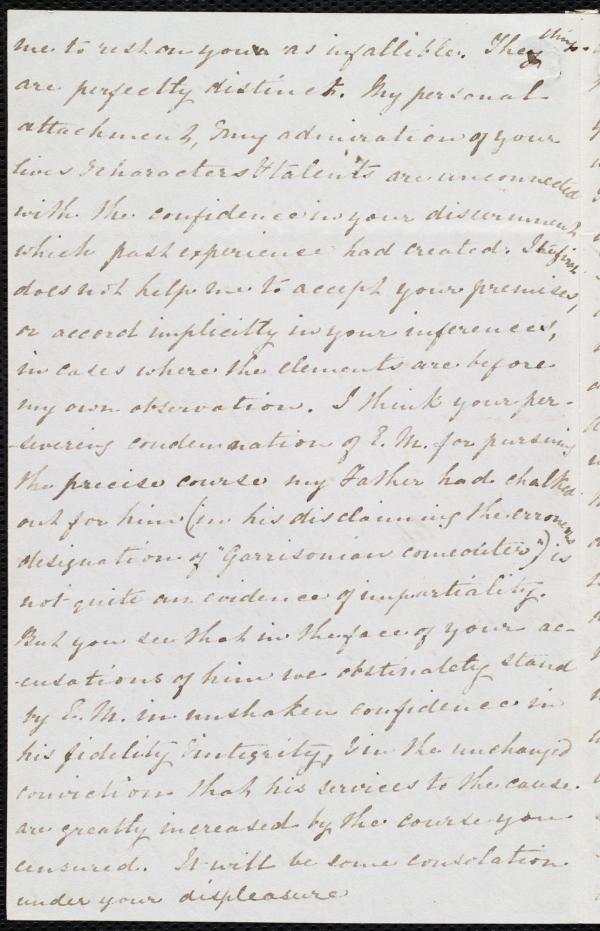 me to rest on yours as infallible. They
things
are perfectly distinct. My personal
attachment, & my admiration of your
lives & characters & talents are unconnected
with the confidence in your discernment
which past experience had created. The first
does not help me to accept your premises,
or accord implicitly in your inferences,
in cases where the elements are before
my own observation. I think your per-
-severing condemnation of E. M. for pursuing
the precise course my Father had chalked
out for him (in his disclaiming the erroneous
designation of "Garrisonian comeouter") is
not quite an evidence of impartiality.
But you see that in the face of your ac-
-cusations of him we obstinately stand
by E. M. in unshaken confidence in
his fidelity & integrity, & in the unchanged
conviction that his services to the cause
are greatly increased by the course you
censured. It will be some consolation
under your displeasure